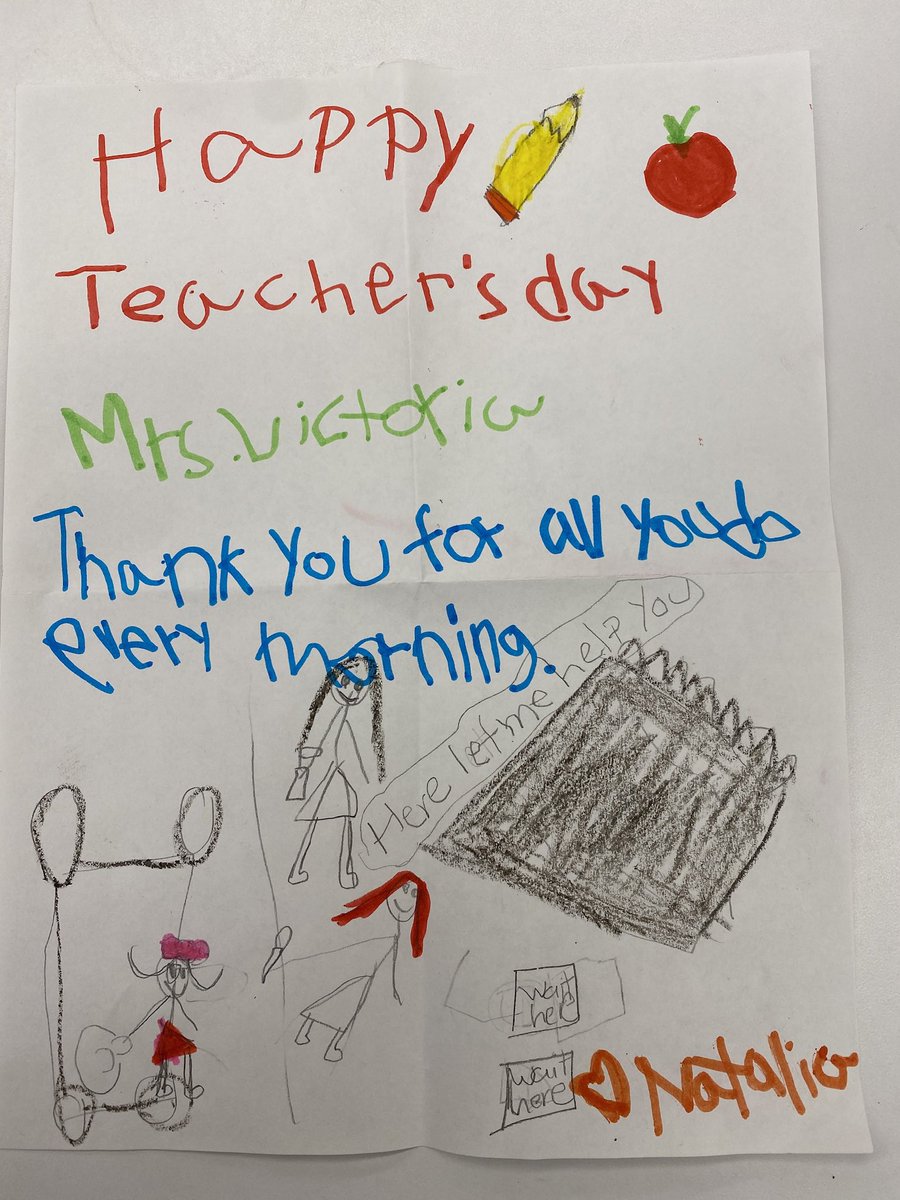 Happy
Teacher's day
Mrs. Victoria
Thank you for all you do
every morning.
Here let me help you
wait
here
wait
here
Natalia